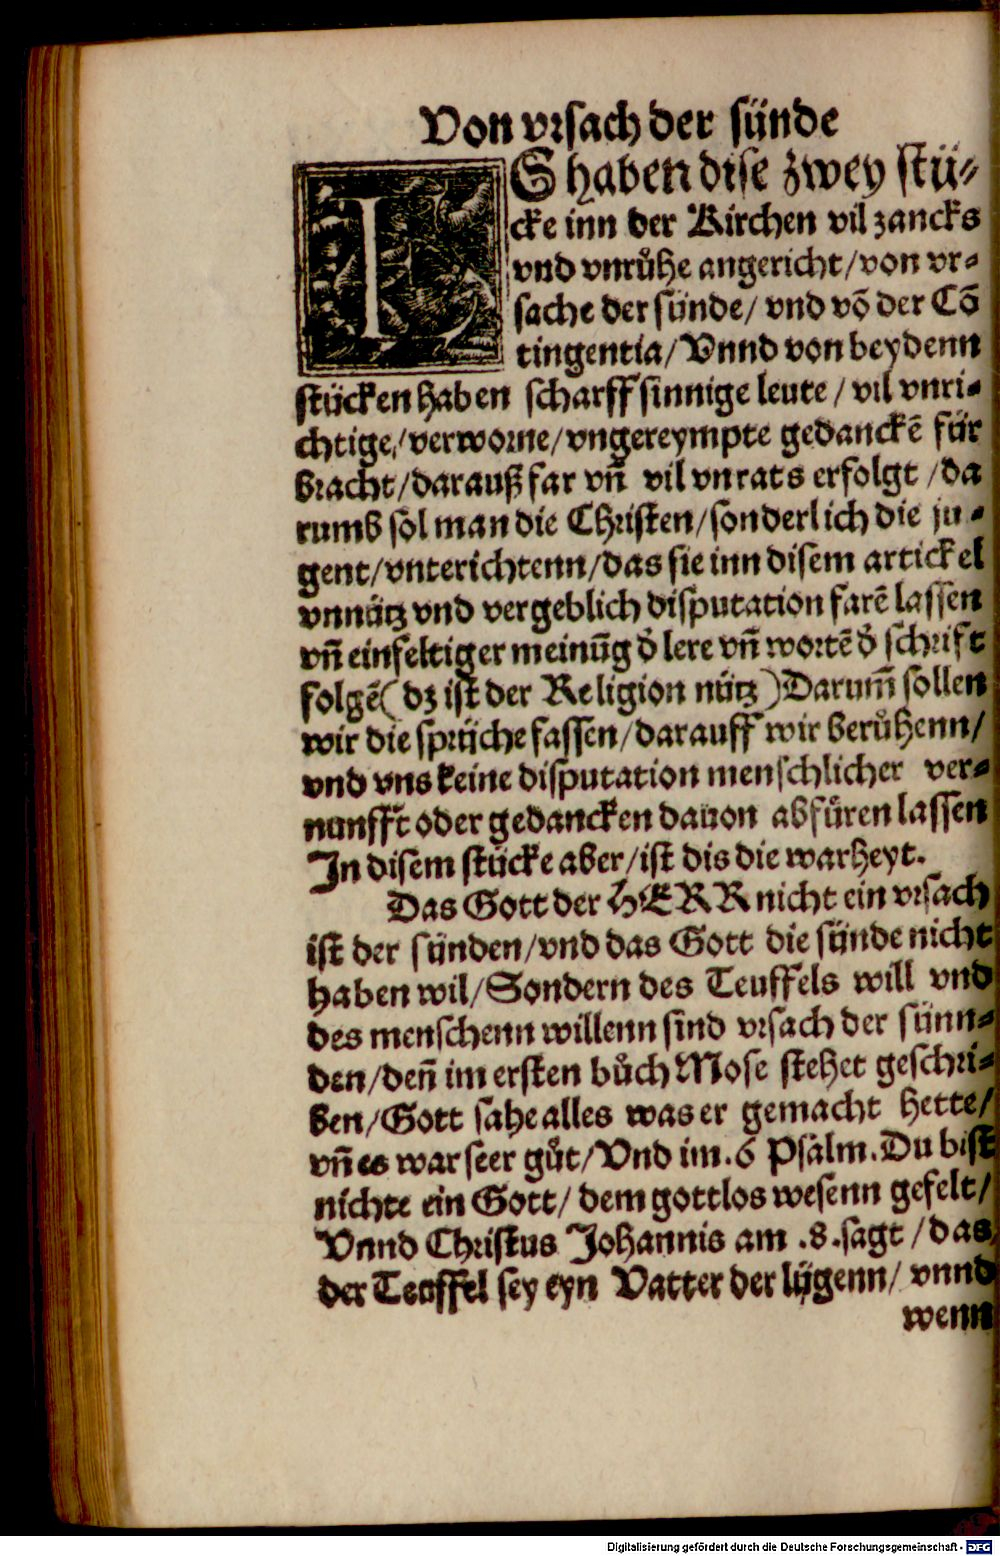 Von vrsach der sünde
ES haben dise zwey stü-
cke inn der Kirchen vil zancks
vnd vnrůhe angericht/von vr-
sache der sünde/ vnd võ der Cõ
tingentia/ Vnnd von beydenn
stücken haben scharffsinnige leute / vil vnri-
chtige/verworne/vngereympte gedanckē für
bracht/darauß far vñ vil vnrats erfolgt /da
rumb sol man die Christen/sonderlich die ju-
gent/vnterichtenn/das sie inn disem artickel
vnnütz vnd vergeblich disputation farē lassen
vñ einfeltiger meinũg d̕ lere vñ wortē d̕ schrift
folgē(dz ist der Religion nütz)Darum̃ sollen
wir die sprüche fassen/darauff wir berůhenn/
vnd vns keine disputation menschlicher ver-
nunfft oder gedancken dauon abfüren lassen
In disem stücke aber/ist dis die warheyt.
Das Gott der HERR nicht ein vrsach
ist der sünden/vnd das Gott die sünde nicht
haben wil/Sondern des Teuffels will vnd
des menschenn willenn sind vrsach der sünn-
den/deñ im ersten bůch Mose stehet geschri-
ben/Gott sahe alles was er gemacht hette/
vñ es war seer gůt/Vnd im .6 Psalm.Du bist
nichte ein Gott/ dem gottlos wesenn gefelt/
Vnnd Christus Johannis am .8.sagt /das
der Teuffel sey eyn Vatter der lügenn/ vnnd
wenn
Digitalisierung gefördert durch die Deutsche Forschungsgemeinschaft - DFG